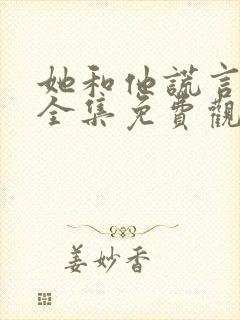 她和他謊言
全集免費觀
姜妙香